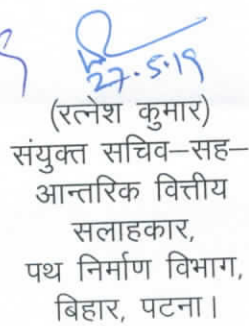 27.5.19
(रत्नेश कुमार)
संयुक्त सचिव–सह–
आन्तरिक वित्तीय
सलाहकार,
पथ निर्माण विभाग,
बिहार, पटना।